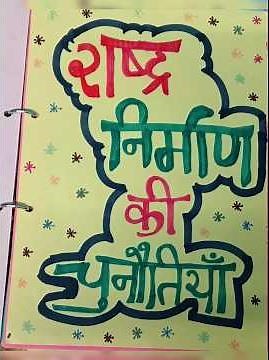 राष्ट्र
निर्माण
की
चुनौतियाँ